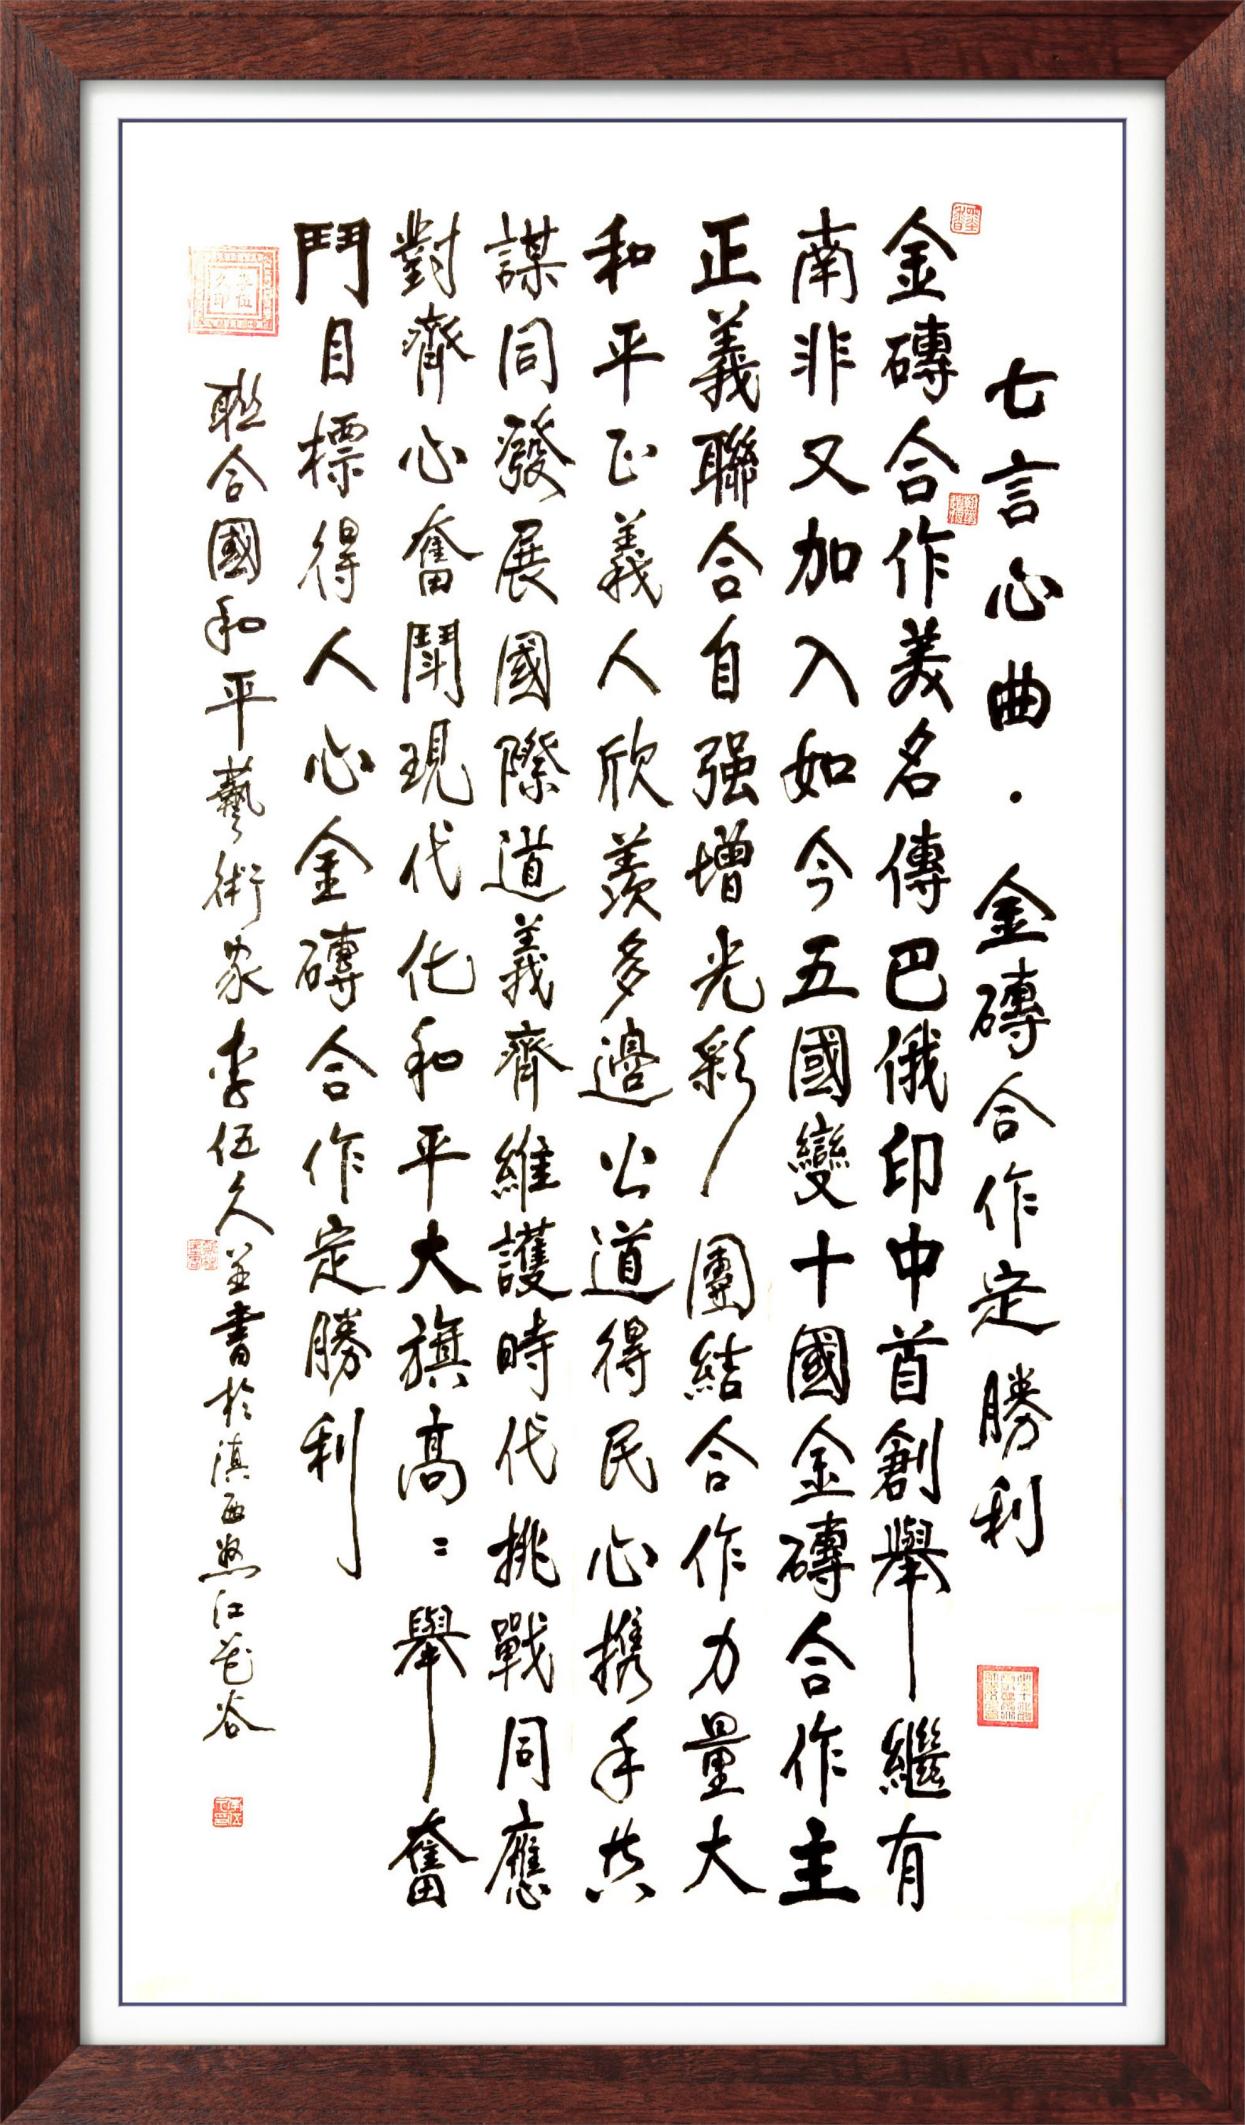 七言心曲·金磚合作定勝利
金磚合作美名傳巴俄印中首創舉繼有
南非又加入如今五國變十國金磚合作主
正義聯合自强增光彩團結合作力量大
和平正義人欣羨多邊公道得民心携手共
謀同發展國際道義齊維護時代挑戰同應
對齊心奮鬭現代化和平大旗高:舉奮
鬥目標得人心金磚合作定勝利
聯合國和平藝術家李伍久並書於滇西怒江花谷